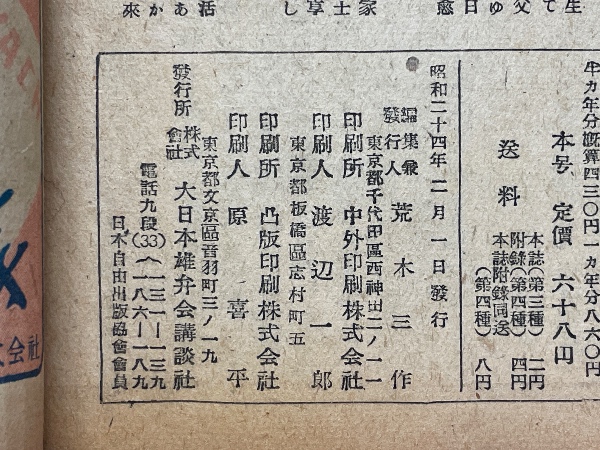 半カ年分概算四三〇円一カ年分八六〇円
本号 定價 六十八円
送料
本誌(第三種) 二円
附録(第四種) 四円
本誌附録同送(第四種) 八円
昭和二十四年二月一日発行
編集兼発行人 荒木三作
東京都千代田區西神田二ノ一一
印刷所 中外印刷株式会社
印刷人 渡辺一郎
東京都板橋區志村町五
印刷所 凸版印刷株式会社
印刷人 原喜平
東京都文京區音羽町三ノ一九
發行所 株式會社 大日本雄弁会講談社
電話九段(33)(一三一―一三九
一八六―一八九
日本自由出版協會會員
会社